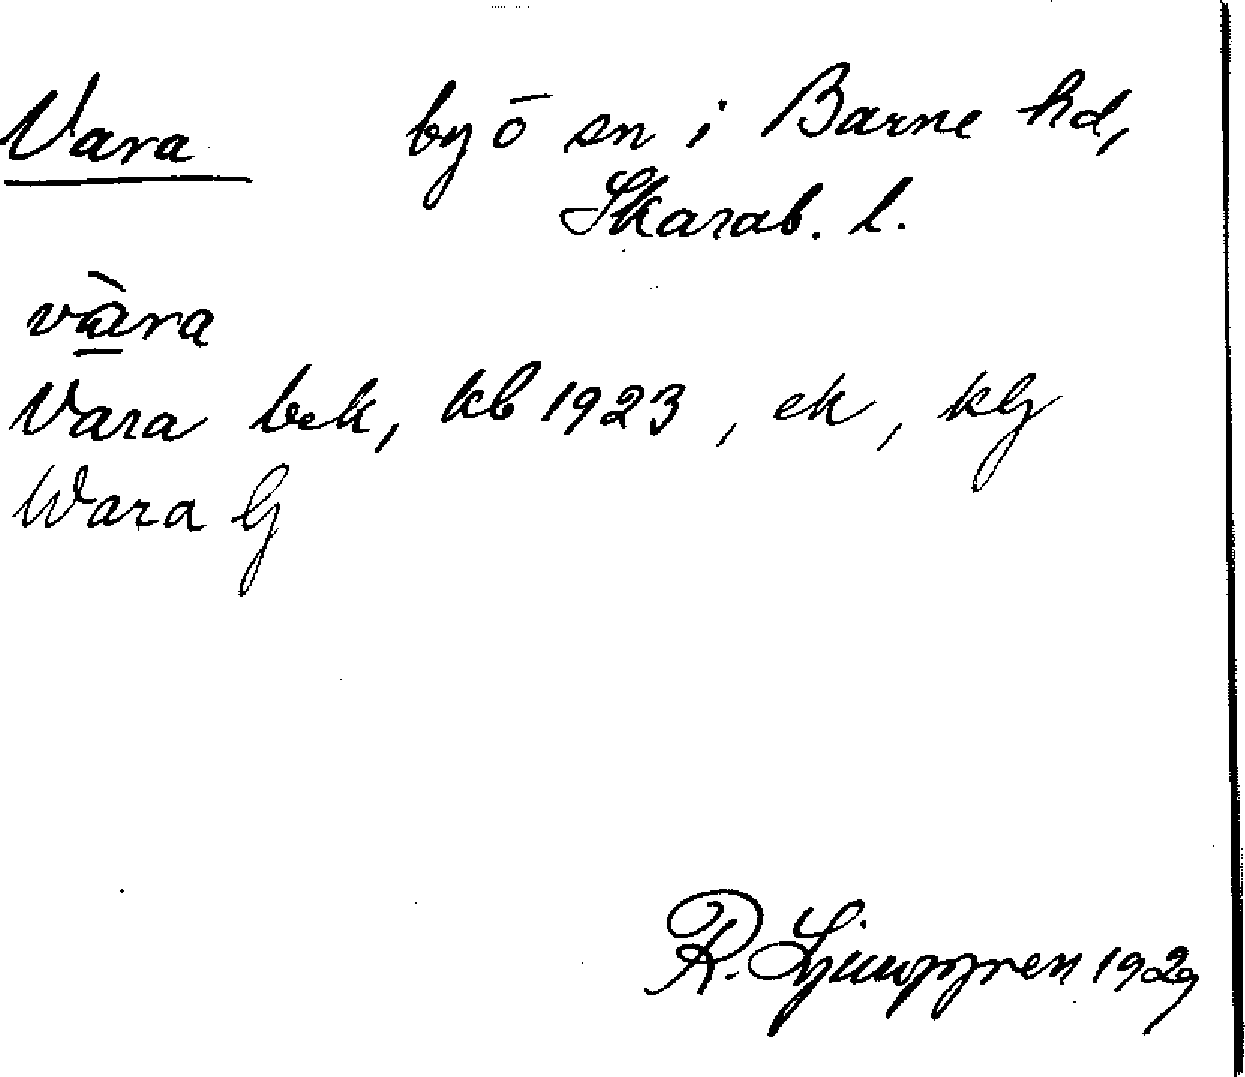 Vara by o sn i Barne hd,
Skarab. l.
vàra
Vara bek, kb 1923, ek, kG
Wara G
R. Ljunggren 1929